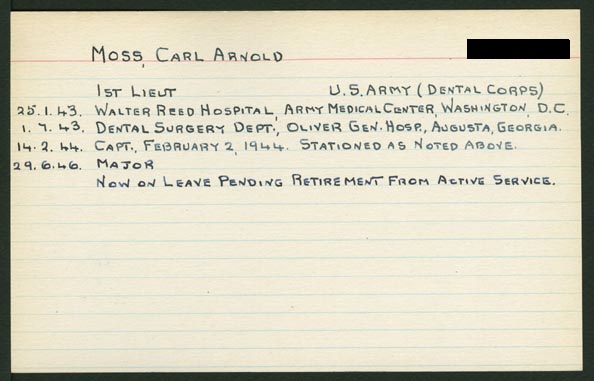 Moss, Carl Arnold
1st Lieut U.S. Army (Dental Corps)
25.1.43. Walter Reed Hospital, Army Medical Center, Washington, D.C.
1.7.43. Dental Surgery Dept., Oliver Gen. Hosp., Augusta, Georgia.
14.2.44. Capt., February 2, 1944. Stationed as Noted Above.
29.6.46. Major
Now on Leave Pending Retirement From Active Service.